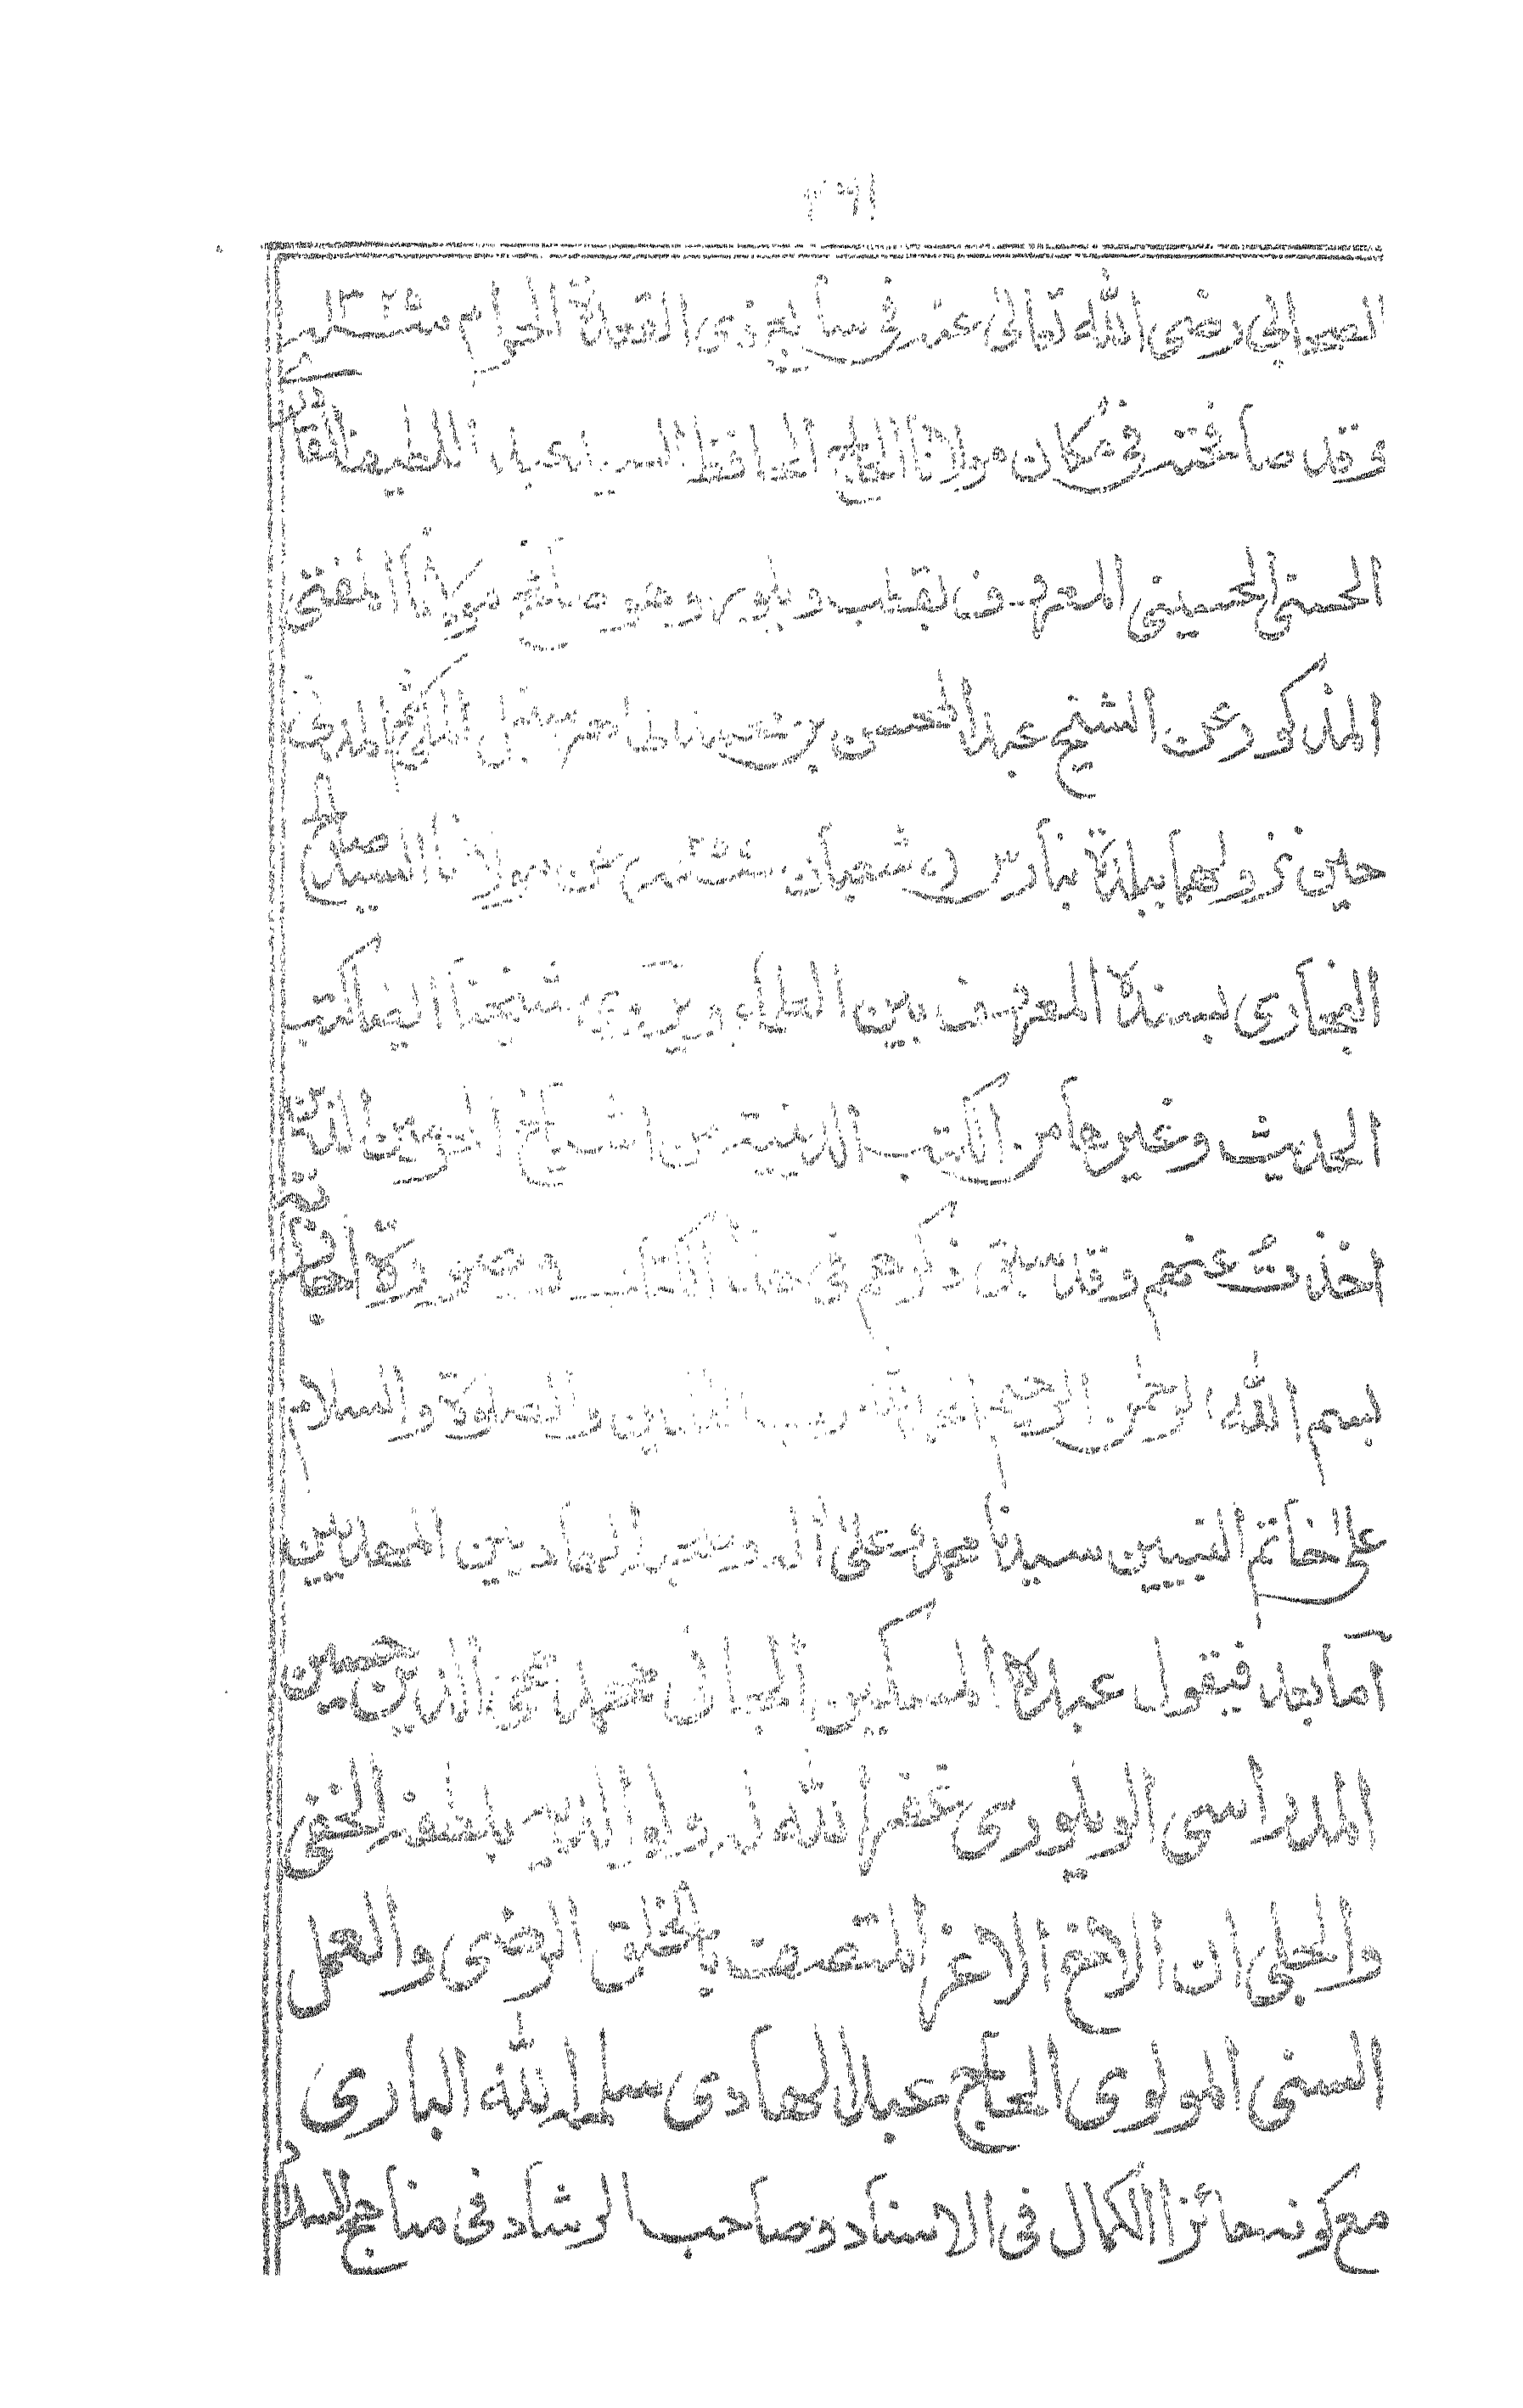 الصحابي رضى الله تعالى عنه في سابع ذى القعدة الحرام سنة ١٣٢٥
وقد صافحته في مكان مولانا الحاج الحافظ السيد عبد اللطيف القادرى
الحسنى الحسينى المعروف بقطب ويلور وهو صافح مولانا المفتى
المذكور عن الشيخ عبد المحسن بن المكى ثم المدنى
حين نزولهما ببلدة بنارس فى شعبان سنة عن مولانا السيد صالح
البخارى بسنده المعروف بين العلماء ويروى شيخنا ايضا كتب
الحديث وغيرها من الكتب الدينية من اشياخ الحرمين الذين
اخذتُ عنهم وقد سبق ذكرهم في هذا الكتاب وصورة اجازته
بسم الله الرحمن الرحيم الحمد لله رب العلمين والصلوة والسلام
على خاتم النبيين سيدنا محمد وعلى آله وصحبه الهاديين المهديين
آما بعد فيقول عبده المسكين الجانى محمد محى الدين حسين
المدراسى الويلورى غفر الله له ولوالديه بلطفه الخفى
والجلى ان الاخ الاغر المتصف بالخلق الرضى والعمل
السنى المولوى الحاج عبد الهادى سلمه الله البارى
مع كونه حائزا الكمال فى الاسناد وصاحب الرشاد فى مناهج السداد